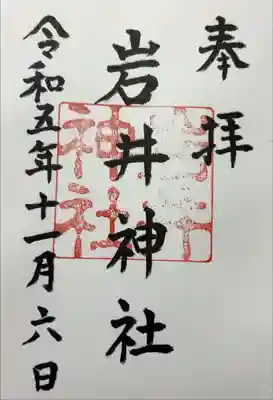 奉拝
岩井神社
令和五年十一月六日